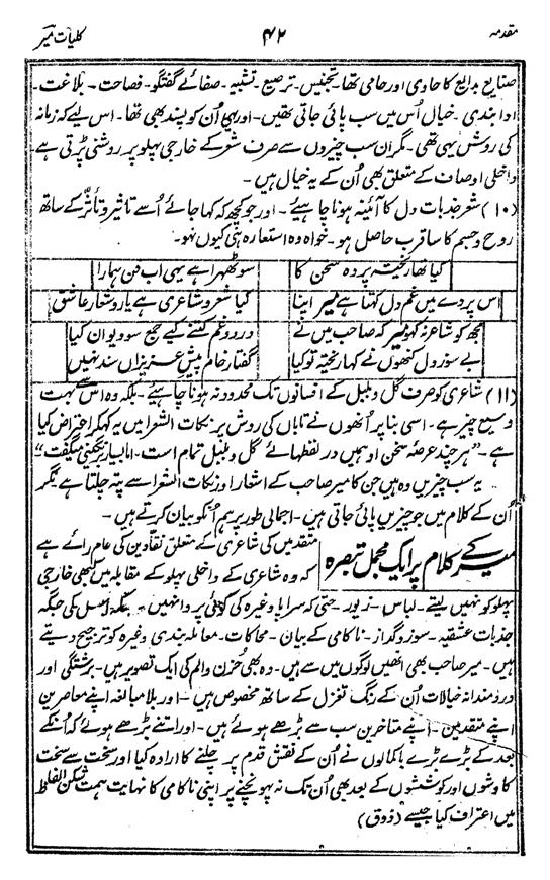 مقدمہ ۴۲ کلیات میر
صنایع بدایع کا حاوی اور حامی تھا تجنیس ۔ ترصیع ۔ تشبیہ ۔ صفائے گفتگو ۔ فصاحت ۔ بلاغت ۔
ادا بندی ۔ خیال اُس میں سب پائی جاتی تھیں ۔ اور یہی اُن کو پسند بھی تھا ۔ اس لیے کہ زمانہ
کی روش یہی تھی ۔ مگر ان سب چیزوں سے صرف شعر کے خارجی پہلو پر روشنی پڑتی ہے
داخلی اوصاف کے متعلق بھی اُن کے یہ خیال ہیں ۔
(۱۰) شعر جذبات دل کا آئینہ ہونا چاہیے ۔ اور جو کچھ کہ کہا جائے اُسے تاثیر و تأثر کے ساتھ
روح و جسم کا سا قرب حاصل ہو ۔ خواہ وہ استعارہ ہی کیوں نہو ۔
کیا تھا ریختہ پردہ سخن کا سو ٹھہرا ہے یہی اب فن ہمارا
اس پردے میں غم دل کہتا ہے میر اپنا کیا شعر و شاعری ہے یارو شعار عاشق
مجھ کو شاعر نہ کہو میر کہ صاحب میں نے درد و غم کتنے کیے جمع سو دیوان کیا
بے سوز دل کنھوں نے کہا ریختہ تو کیا گفتار خام پیش عزیزاں سند نہیں
(۱۱) شاعری کو صرف گل و بلبل کے افسانوں تک محدود نہ ہونا چاہیے ۔ بلکہ وہ اس سے بہت
وسیع چیز ہے ۔ اسی بنا پر اُنھوں نے تاباں کی روش پر نکات الشعرا میں یہ کہکر اعتراض کیا
ہے ۔ "ہر چند عرصہ سخن او ہمیں در لفظہائے گل و بلبل تمام است ۔ اما بسیار برنگینی میگفت"
یہ سب چیزیں وہ ہیں جن کا میر صاحب کے اشعار اور نکات الشعرا سے پتہ چلتا ہے مگر
اُن کے کلام میں جو چیزیں پائی جاتی ہیں ۔ اجمالی طور پر ہم اُنکو بیان کرتے ہیں ۔
میر کے کلام پر ایک مجمل تبصرہ
متقدمیں کی شاعری کے متعلق نقادین کی عام رائے ہے
کہ وہ شاعری کے داخلی پہلو کے مقابلہ میں کبھی خارجی
پہلو کو نہیں لیتے ۔ لباس ۔ زیور ۔ حتی کہ سراپا وغیرہ کی کوئی پروا نہیں ۔ بلکہ اسکی جگہ
جذبات عشقیہ ۔ سوز و گداز ۔ ناکامی کے بیان ۔ محاکات ۔ معاملہ بندی وغیرہ کو ترجیح دیتے
ہیں ۔ میر صاحب بھی انھیں لوگوں میں سے ہیں ۔ وہ بھی حُزن و الم کی ایک تصویر ہیں ۔ برشتگی اور
دردمندانہ خیالات اُن کے رنگ تغزل کے ساتھ مخصوص ہیں ۔ اور بلا مبالغہ اپنے معاصرین
اپنے متقدمین ۔ اپنے متاخرین سب سے بڑھے ہوئے ہیں ۔ اور اتنے بڑھے ہوئے کہ اُنکے
بعد کے بڑے بڑے باکمالوں نے اُن کے نقش قدم پر چلنے کا ارادہ کیا اور سخت سے سخت
کاوشوں اور کوششوں کے بعد بھی اُن تک نہ پہونچنے پر اپنی ناکامی کا نہایت ہمت شکن الفاظ
میں اعتراف کیا جیسے (ذوق)